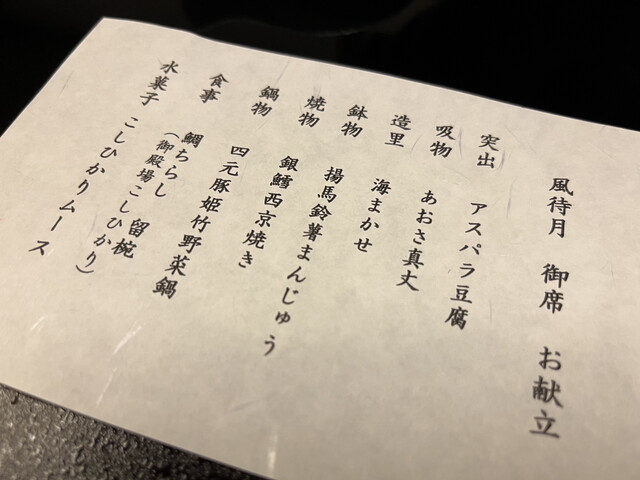 風待月 御席 お献立
突出 アスパラ豆腐
吸物 あおさ真丈
造里 海まかせ
鉢物 揚馬鈴薯まんじゅう
焼物 銀鱈西京焼き
鍋物 四元豚姫竹野菜鍋
食事 鯛ちらし 留椀
(御殿場こしひかり)
水菓子 こしひかりムース